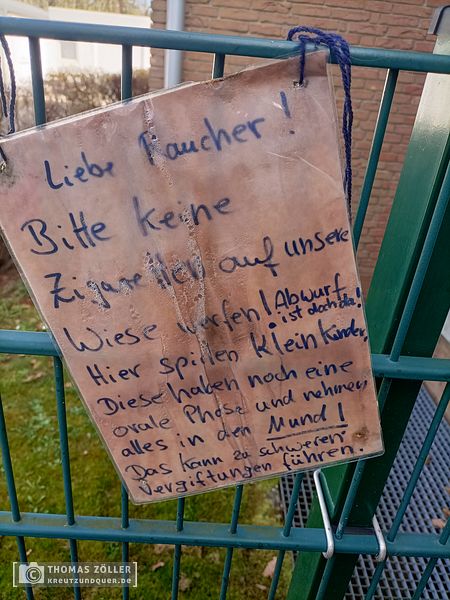 Liebe Raucher!
Bitte keine
Zigaretten auf unsere
Wiese werfen! Abwurf
ist doch da!
Hier spielen Kleinkinder,
Diese haben noch eine
orale Phase und nehmen
alles in den Mund!
Das kann zu schweren
Vergiftungen führen.
© THOMAS ZÖLLER
KREUTZUNDQUER.DE